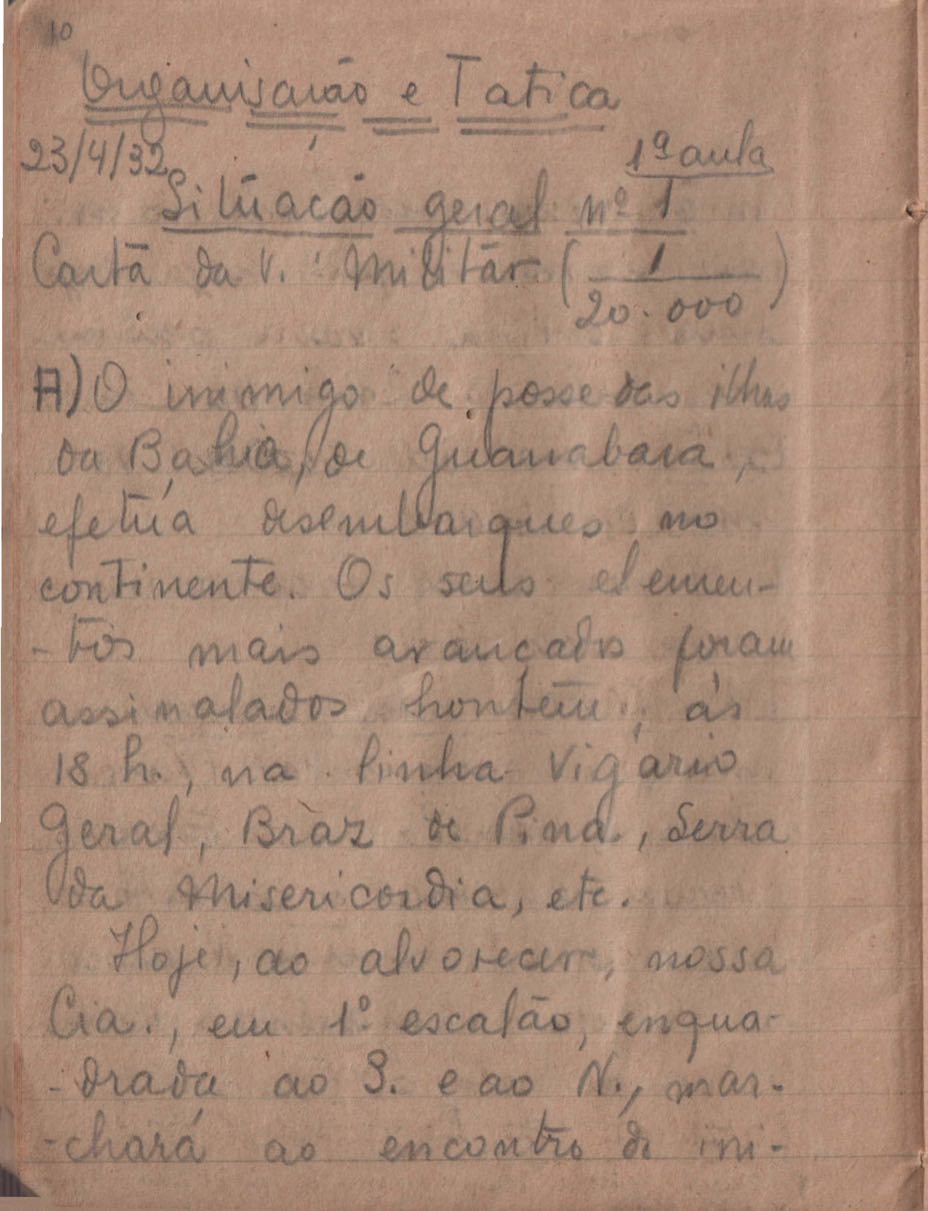 10
Organisação e Tatica
23/4/32 1ª aula
Situação geral nº 1
Carta da V. Militar (1/20.000)
A) O inimigo de posse das ilhas
da Bahia de Guanabara,
efetúa desembarques no
continente. Os seus elemen-
-tos mais avançados foram
assinalados hontem, ás
18 h., na linha Vigário
Geral, Bráz de Pina, Serra
da Misericordia, etc.
Hoje, ao alvorecer, nossa
Cia., em 1º escalão, enqua-
-drada ao S. e ao N., mar-
-chará ao encontro do ini-